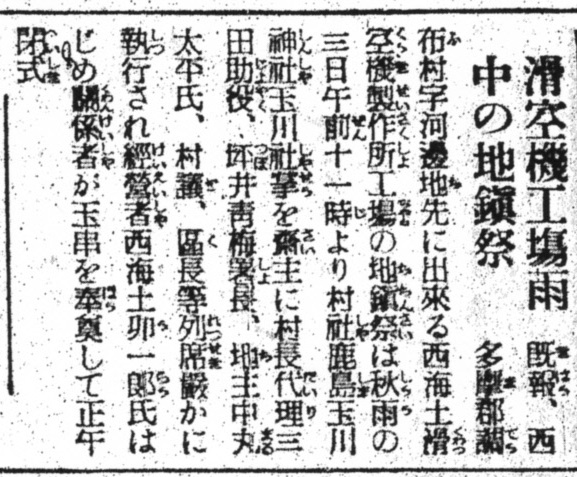 滑空機工塲雨
中の地鎭祭
既報、西
多摩郡調
布村字河邊地先に出來る西海土滑
空機製作所工塲の地鎭祭は秋雨の
三日午前十一時より村社鹿島玉川
神社玉川社掌を齋主に村長代理三
田助役、坪井靑梅署長、地主中丸
太平氏、村議、區長等列席嚴かに
執行され經營者西海土卯一郎氏は
じめ關係者が玉串を奉奠して正午
閉式